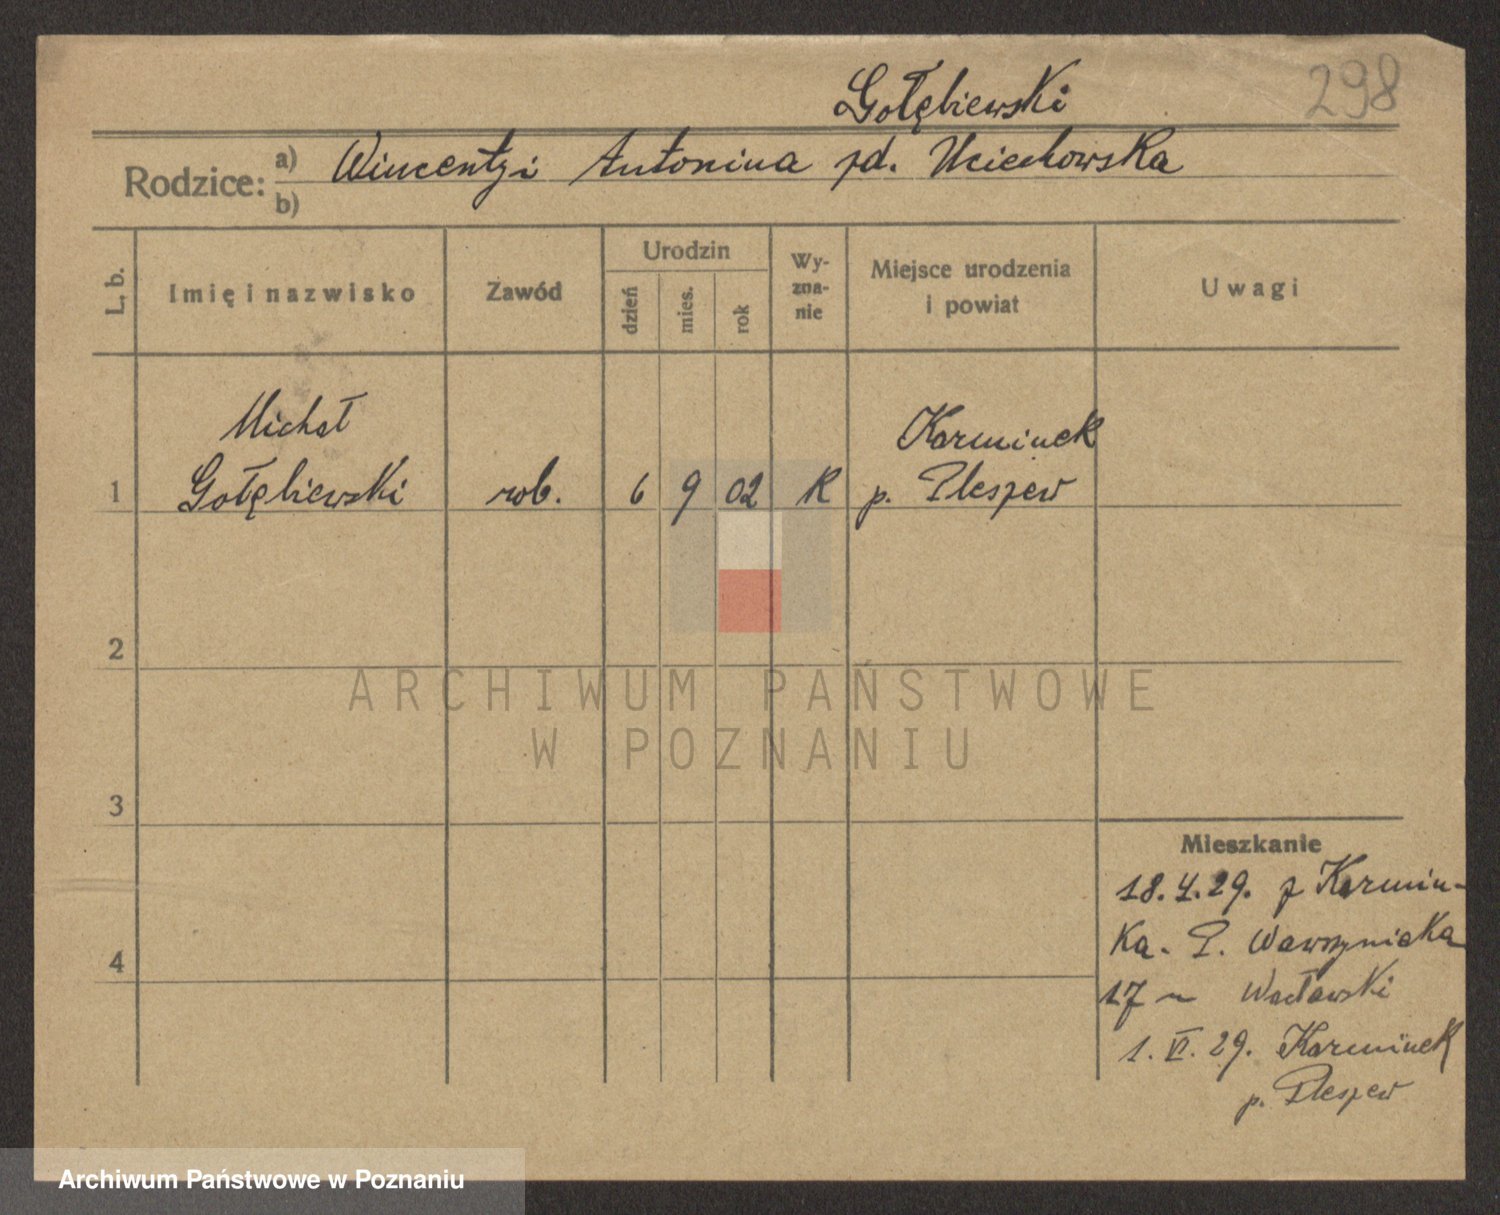 298
Gołębiewski
Rodzice: a) Wincenty i Antonina zd. Uciechowska
b)
L. b.
Imię i nazwisko
Zawód
Urodzin
dzień
mies.
rok
Wy-
zna-
nie
Miejsce urodzenia
i powiat
Uwagi
Michał Karminek
1 Gołębiewski rob. 6 9 02 K p. Pleszew
2
ARCHIWUM PAŃSTWOWE
W POZNANIU
3
Mieszkanie
18.4.29. z Karmin-
ka. P. Wawrzyniaka
4
17 Wacławski
1. VI. 29. Karminek
p. Pleszew
Archiwum Państwowe w Poznaniu